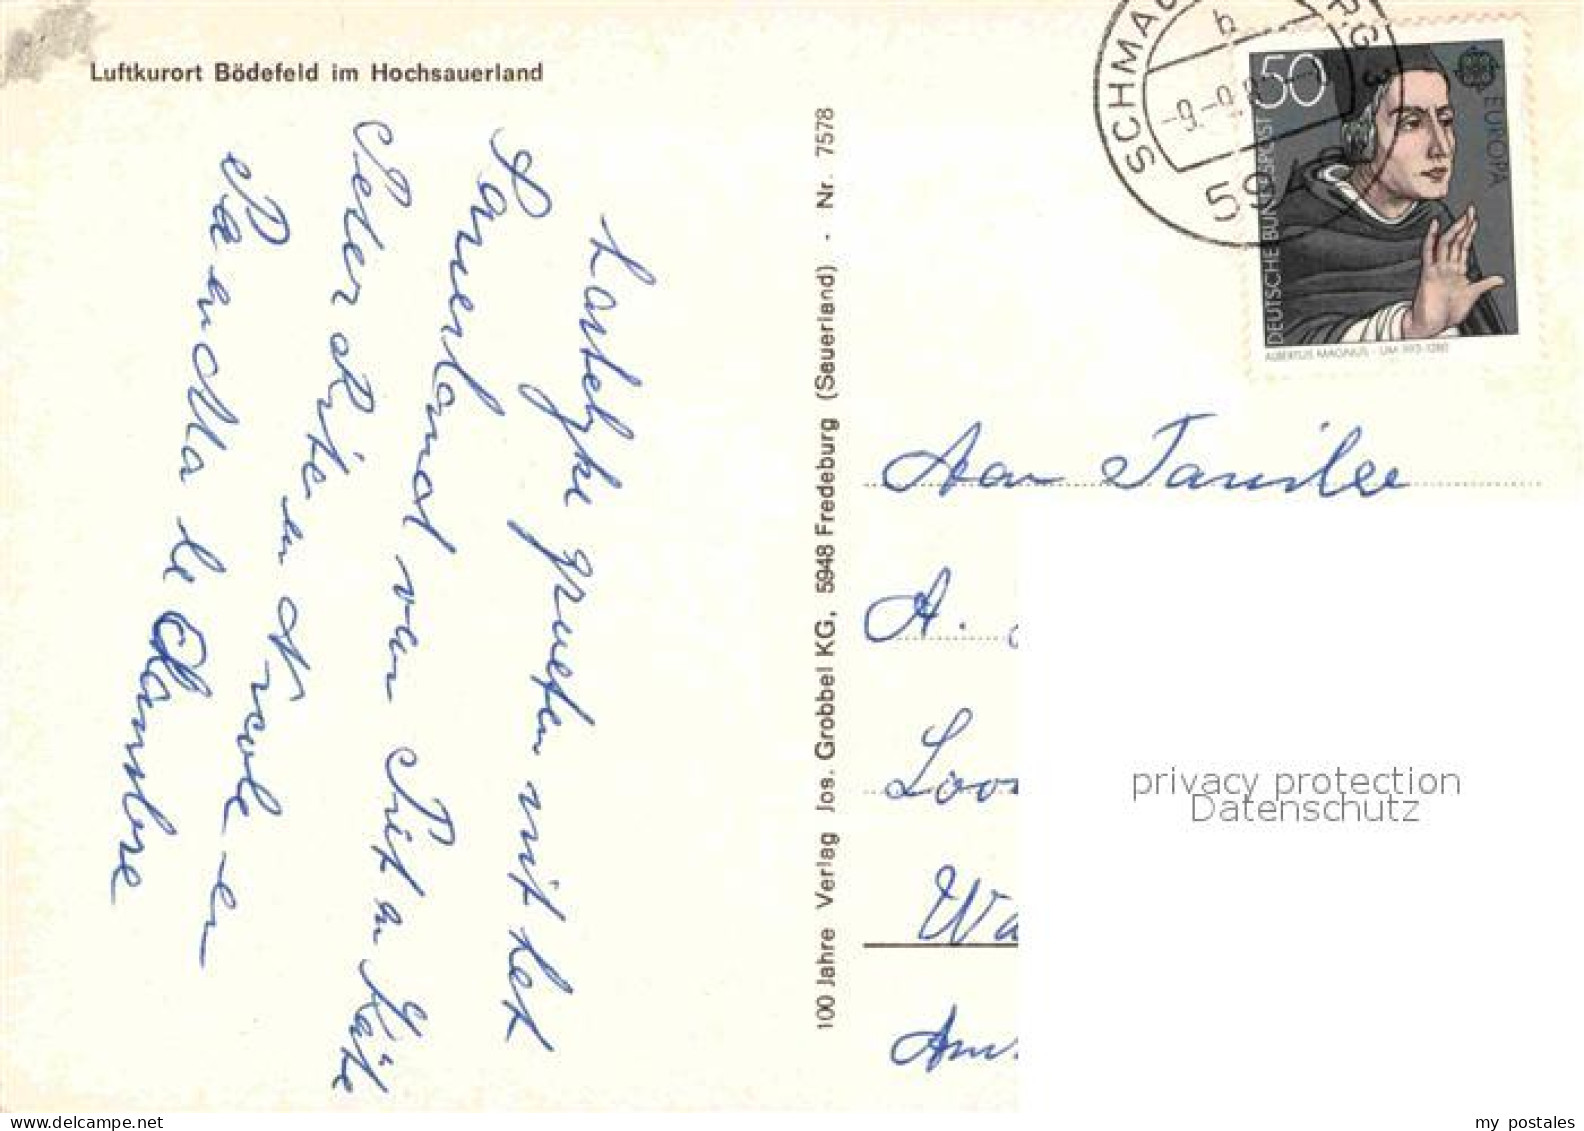 Luftkurort Bödefeld im Hochsauerland
Hartelyke grueten uit het
Sauerland van Piet en Käte
Peter Rite en Nicole en
Pa en Ma le Clambre
100 Jahre Verlag Jos. Grobbel KG, 5948 Fredeburg (Sauerland) - Nr. 7578
SCHMAL RG 3
b
-9.-9.8
59
50
DEUTSCHE BUNDESPOST
EUROPA
ALBERTUS MAGNUS · UM 1193-1280
Aan Familie
A.
Loo
Wa
Am
privacy protection
Datenschutz
my postales